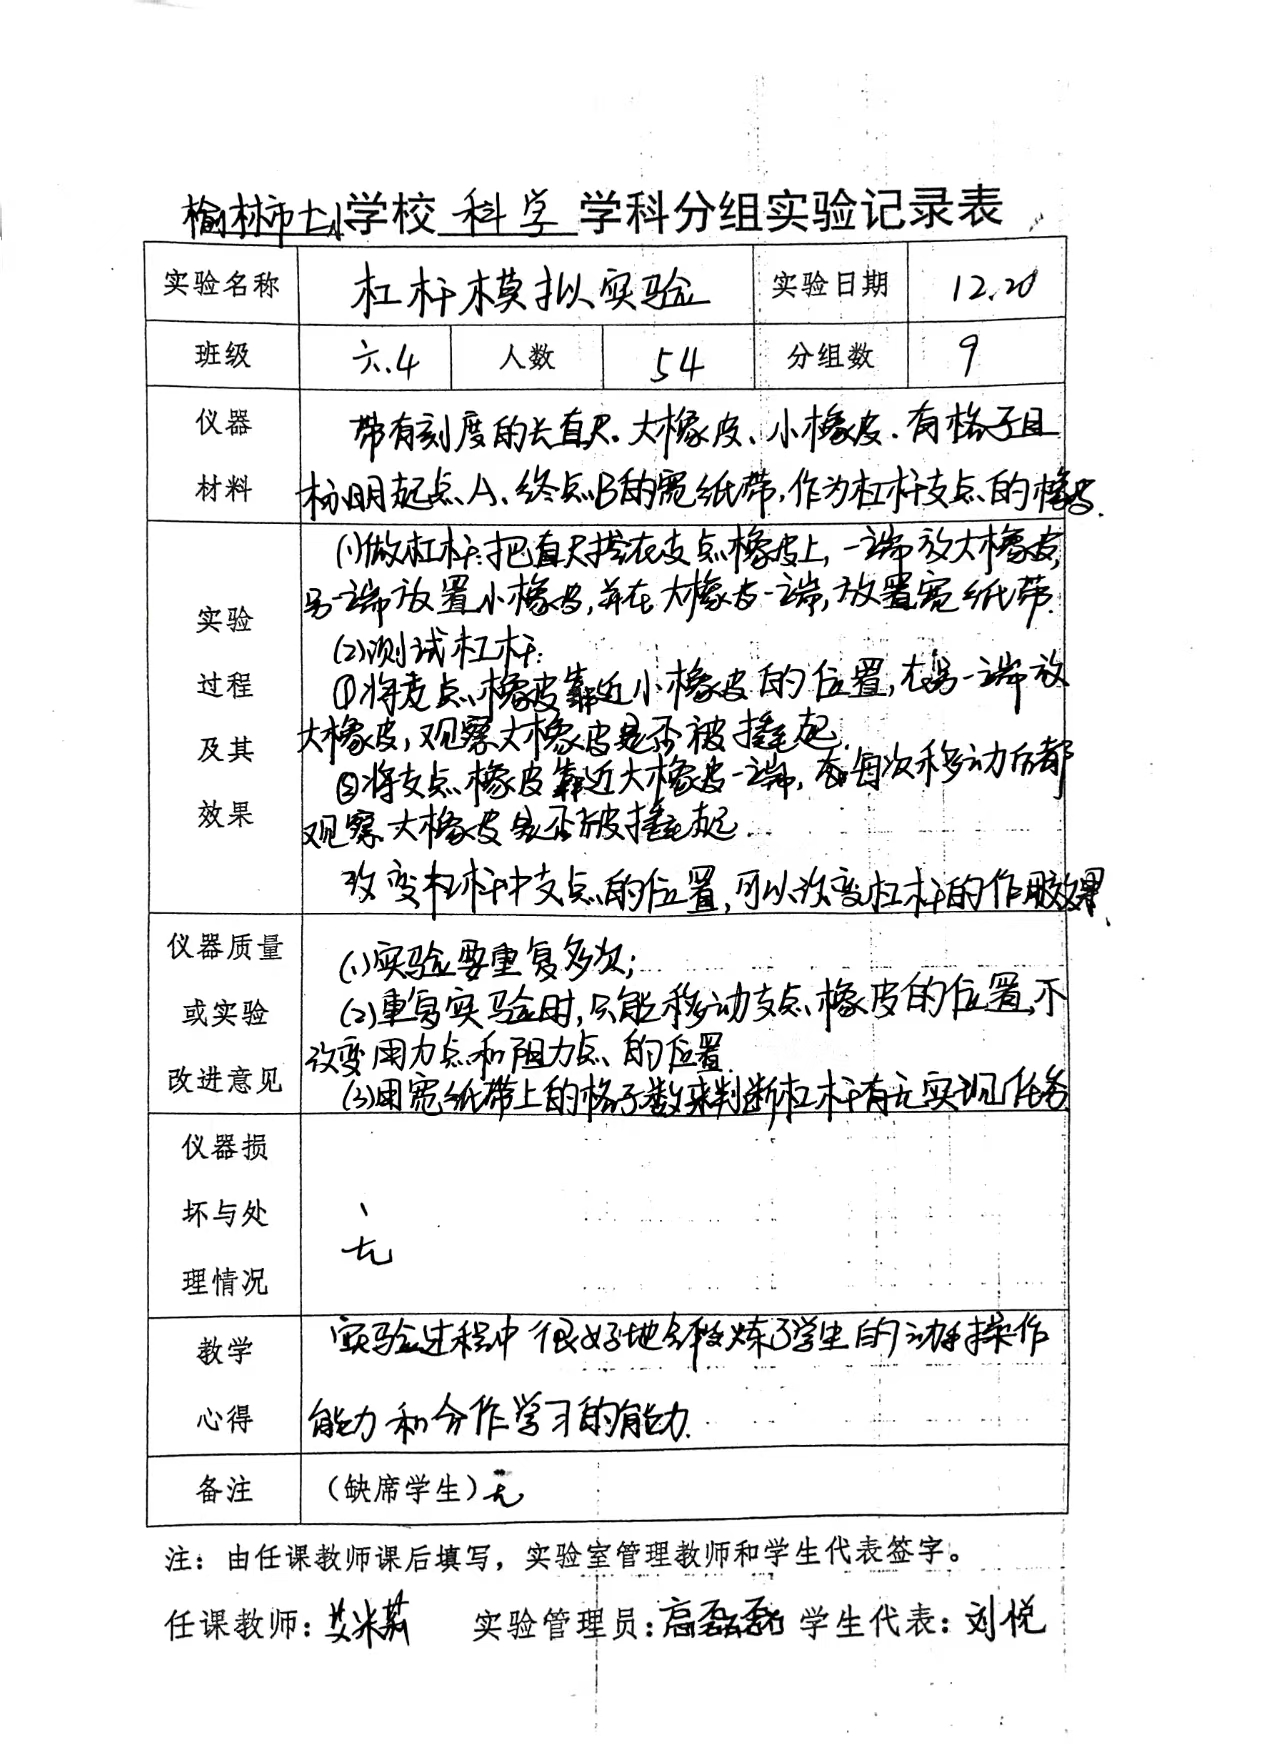 榆林市十八学校 科学 学科分组实验记录表
实验名称 杠杆模拟实验 实验日期 12.20
班级 六.4 人数 54 分组数 9
仪器材料
带有刻度的长直尺、大橡皮、小橡皮、有格子且
标明起点A、终点B的宽纸带,作为杠杆支点的橡皮.
实验过程及其效果
(1)做杠杆:把直尺搭在支点橡皮上,一端放大橡皮,
另一端放置小橡皮,并在大橡皮一端,放置宽纸带.
(2)测试杠杆:
①将支点橡皮靠近小橡皮的位置,在另一端放
大橡皮,观察大橡皮是否被撬起.
②将支点橡皮靠近大橡皮一端,在每次移动后都
观察大橡皮是否被撬起.
改变杠杆中支点的位置,可以改变杠杆的作用效果.
仪器质量或实验改进意见
(1)实验要重复多次;
(2)重复实验时,只能移动支点橡皮的位置,不
改变用力点和阻力点的位置.
(3)用宽纸带上的格子数来判断杠杆有无实现任务
仪器损坏与处理情况
无
教学心得
实验过程中很好地锻炼了学生的动手操作
能力和合作学习的能力.
备注 (缺席学生)无
注：由任课教师课后填写，实验室管理教师和学生代表签字。
任课教师：艾米茹 实验管理员：高磊磊 学生代表：刘悦